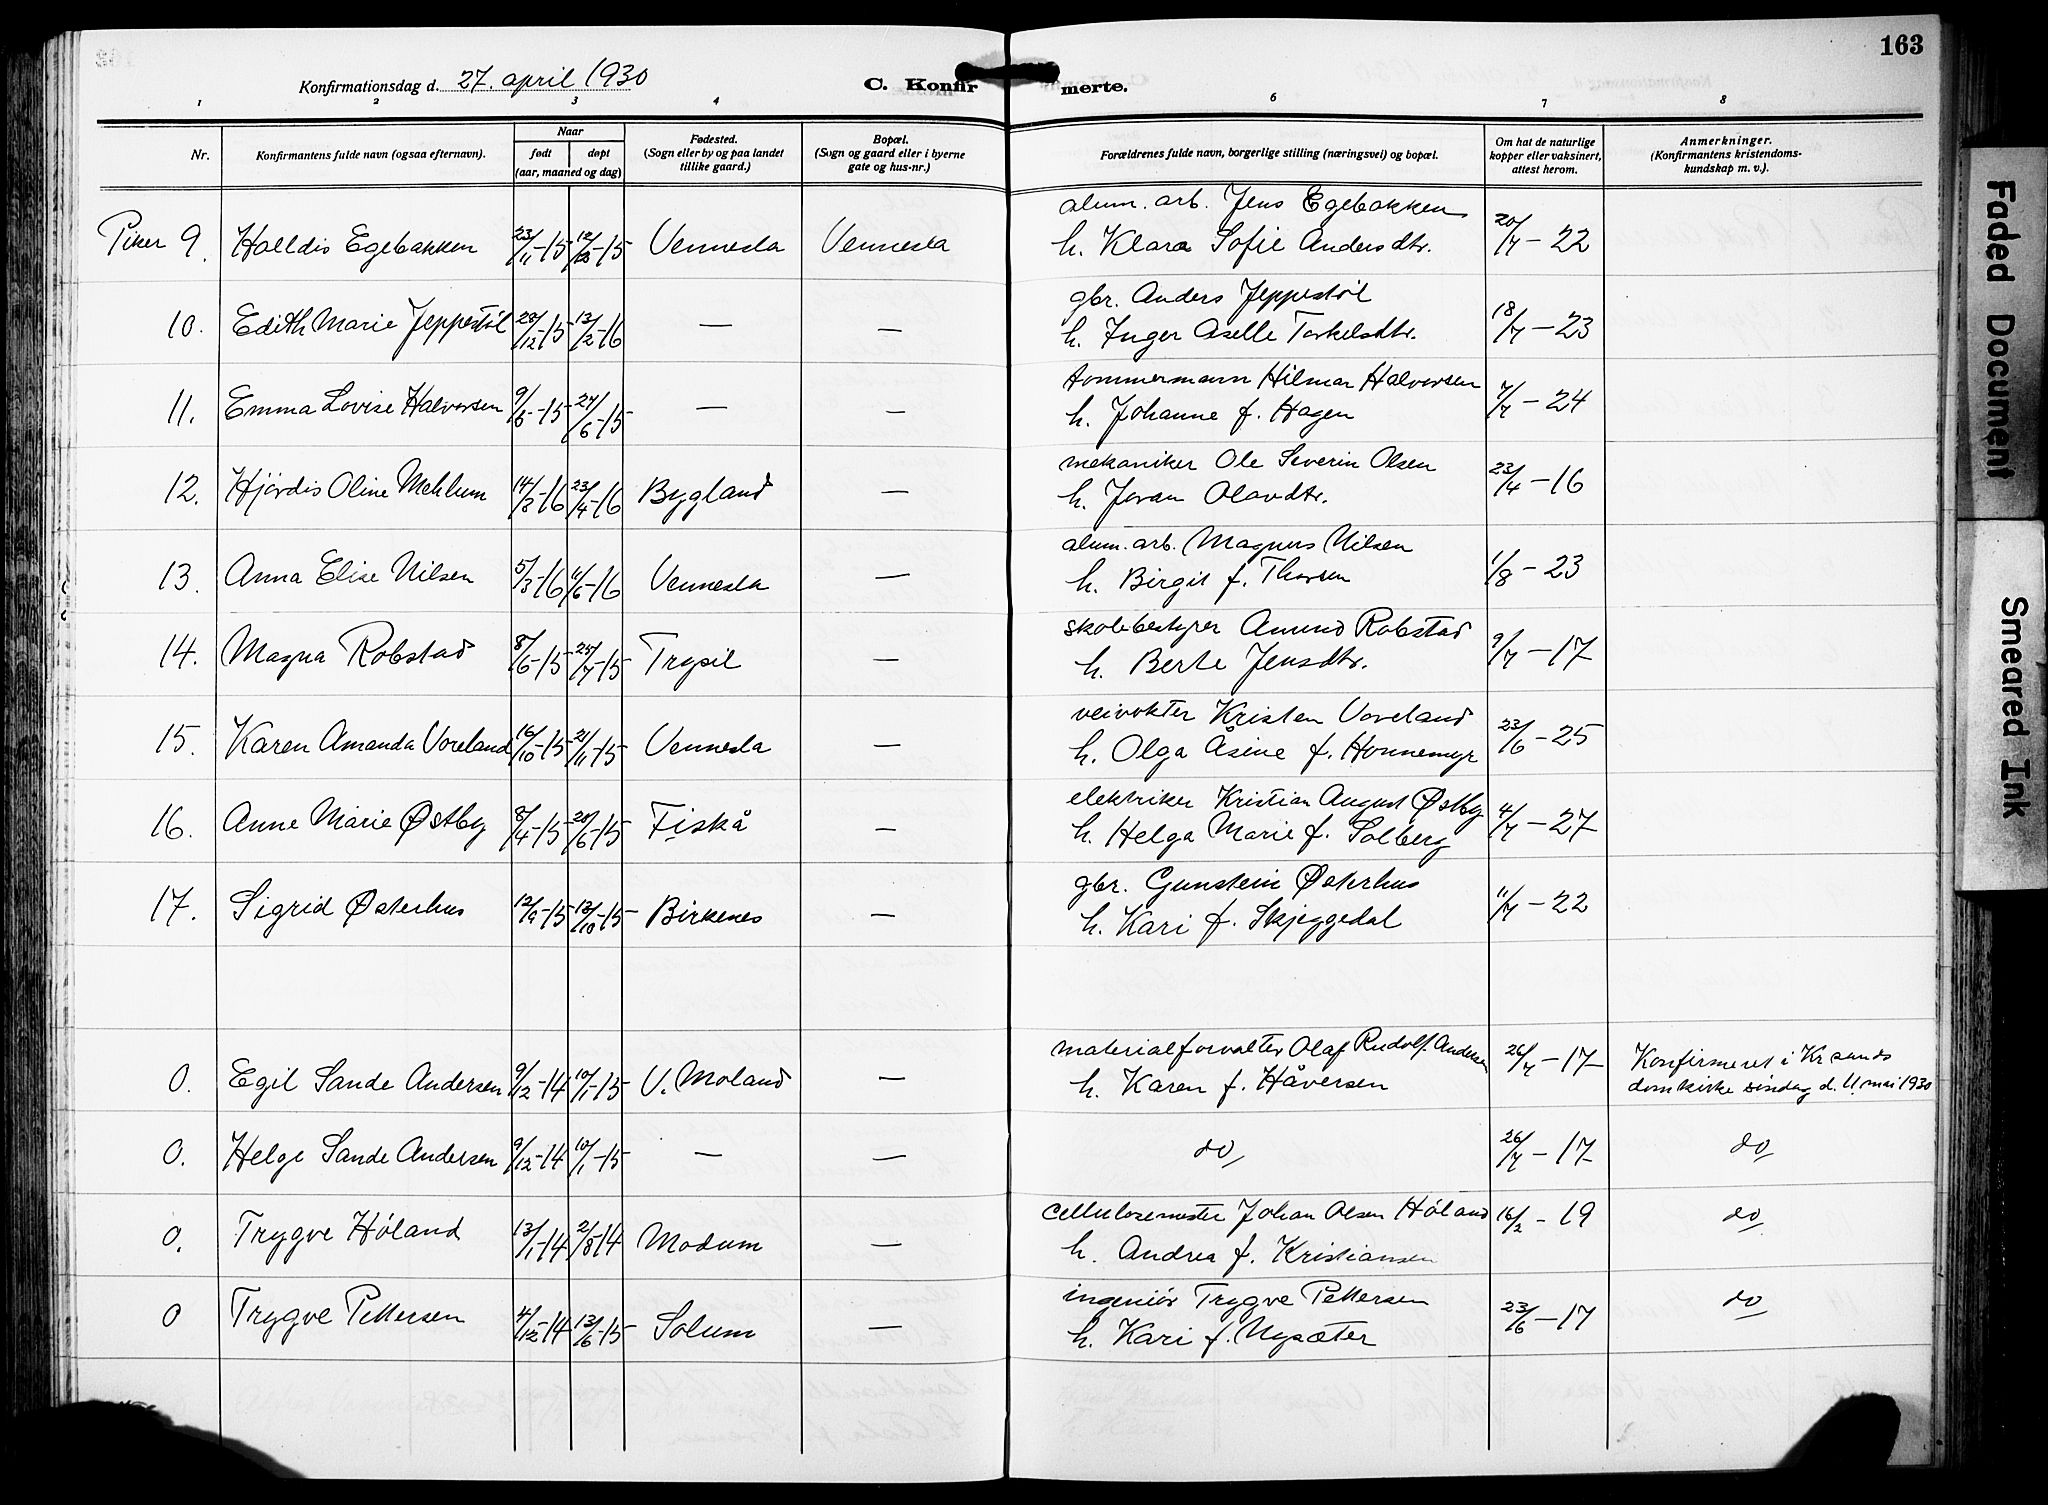 163
Konfirmationsdag d. 27. april 1930
C. Konfirmerte.
1 2 3 4 5 6 7 8
Nr.
Konfirmantens fulde navn (ogsaa efternavn).
Naar
født
døpt
(aar, maaned og dag)
Fødested.
(Sogn eller by og paa landet
tillike gaard.)
Bopæl.
(Sogn og gaard eller i byerne
gate og hus-nr.)
Forældrenes fulde navn, borgerlige stilling (næringsvei) og bopæl.
Om hat de naturlige
kopper eller vaksinert,
attest herom.
Anmerkninger.
(Konfirmantens kristendoms-
kundskap m. v.).
Piker 9. Halldis Egebakken 23/11-15 12/12-15 Vennesla Vennesla alum. arb. Jens Egebakken
h. Klara Sofie Andersdtr. 20/7-22
10. Edith Marie Jeppestøl 23/12-15 13/2-16 — — gbr. Anders Jeppestøl
h. Inger Aselle Torkelsdtr. 18/7-23
11. Emma Lovise Halvorsen 9/5-15 27/6-15 — — tømmermann Hilmar Halvorsen
h. Johanne f. Hagen 7/7-24
12. Hjördis Oline Mehlum 14/3-16 23/4-16 Bygland — mekaniker Ole Severin Olsen
h. Joran Olavdtr. 23/4-16
13. Anna Elise Nilsen 5/3-16 11/6-16 Vennesla — alum. arb. Magnus Nilsen
h. Birgit f. Thorsen 1/8-23
14. Magna Robstad 8/6-15 25/7-15 Trysil — skolebestyrer Amund Robstad
h. Berte Jensdtr. 9/7-17
15. Karen Amanda Voreland 16/10-15 21/11-15 Vennesla — veivokter Kristen Voreland
h. Olga Åsine f. Honnemyr 23/6-25
16. Anne Marie Østby 8/4-15 20/6-15 Fiskå — elektriker Kristian August Østby
h. Helga Marie f. Solberg 4/7-27
17. Sigrid Østerhus 12/9-15 13/10-15 Birkenes — gbr. Gunstein Østerhus
h. Kari f. Skjeggedal 11/7-22
0. Egil Sande Andersen 9/12-14 10/1-15 V. Moland — materialforvalter Olaf Rudolf Andersen
h. Karen f. Håversen 26/7-17 Konfirmeret i Kr.sands
domkirke söndag d. 11 mai 1930
0. Helge Sande Andersen 9/12-14 10/1-15 — — do 26/7-17 do
0. Trygve Höland 13/1-14 2/8-14 Modum — cellulosemester Johan Olsen Höland
h. Andrea f. Kristiansen 16/2-19 do
0 Trygve Pettersen 4/12-14 13/6-15 Solum — ingeniör Trygve Pettersen
h. Kari f. Nysæter 23/6-17 do
Faded Document
Smeared Ink